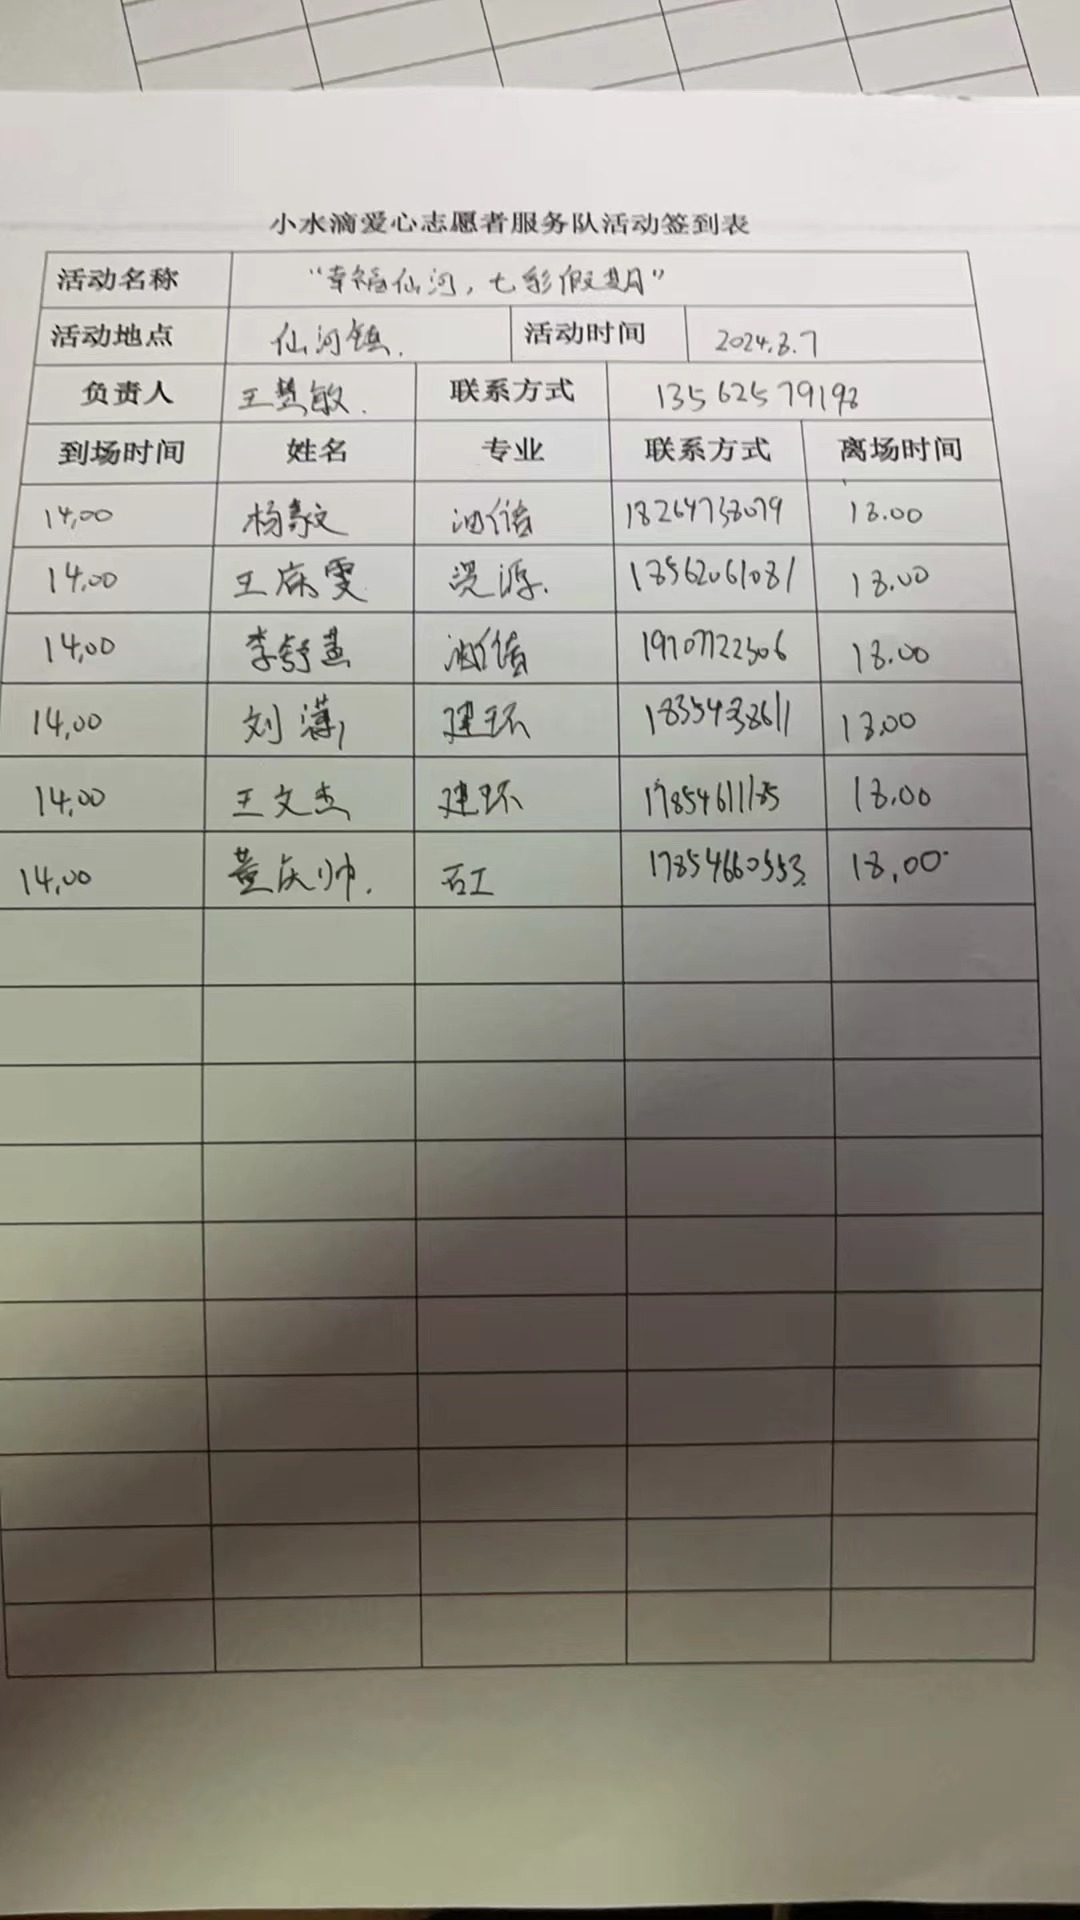 小水滴爱心志愿者服务队活动签到表
活动名称 "幸福仙河，七彩假期"
活动地点 仙河镇. 活动时间 2024.8.7
负责人 王慧敏. 联系方式 13562579198
到场时间 姓名 专业 联系方式 离场时间
14,00 杨敦文 油储 18264738079 18.00
14,00 王席雯 资源. 18562061081 18.00
14,00 李舒燕 油储 19707722306 18.00
14,00 刘 建环 18354338611 18.00
14,00 王文杰 建环 17854611185 18.00
14,00 董庆帅. 石工 17854660553. 18,00